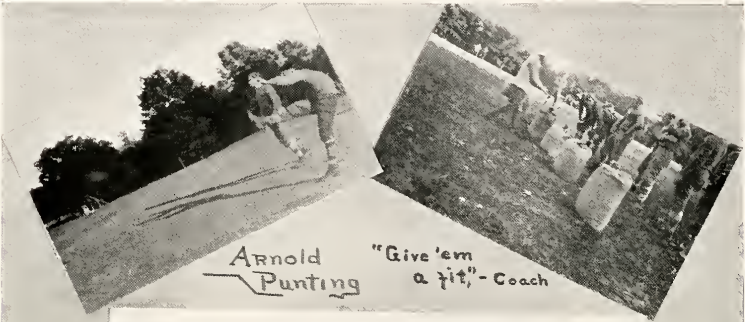 Arnold
Punting
"Give 'em
a fit," - Coach